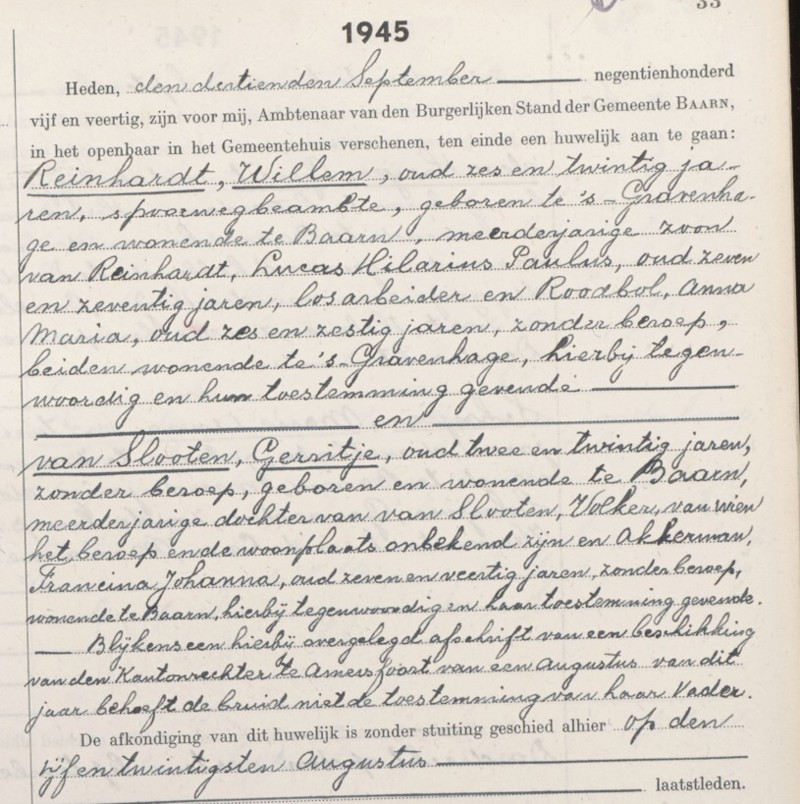 33
1945
Heden, den dertienden September negentienhonderd
vijf en veertig, zijn voor mij, Ambtenaar van den Burgerlijken Stand der Gemeente BAARN,
in het openbaar in het Gemeentehuis verschenen, ten einde een huwelijk aan te gaan:
Reinhardt, Willem, oud zes en twintig ja-
ren, spoorwegbeambte, geboren te 's-Gravenha-
ge en wonende te Baarn, meerderjarige zoon
van Reinhardt, Lucas Hilarius Paulus, oud zeven
en zeventig jaren, los arbeider en Roodbol, Anna
Maria, oud zes en zestig jaren, zonder beroep,
beiden wonende te 's-Gravenhage, hierbij tegen-
woordig en hun toestemming gevende
en
van Slooten, Gerritje, oud twee en twintig jaren,
zonder beroep, geboren en wonende te Baarn,
meerderjarige dochter van van Slooten, Volker, van wien
het beroep en de woonplaats onbekend zijn en Akkerman,
Francina Johanna, oud zeven en veertig jaren, zonder beroep,
wonende te Baarn, hierbij tegenwoordig en haar toestemming gevende.
Blijkens een hierbij overgelegd afschrift van een beschikking
van den Kantonrechter te Amersfoort van een Augustus van dit
jaar behoeft de bruid niet de toestemming van haar Vader.
De afkondiging van dit huwelijk is zonder stuiting geschied alhier op den
vijf en twintigsten Augustus
laatstleden.